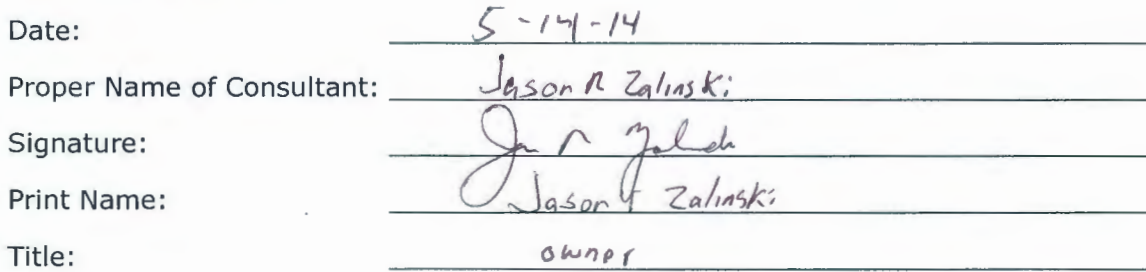 Date: 5-14-14
Proper Name of Consultant: Jason R Zalinski
Signature:
Print Name: Jason Zalinski
Title: owner